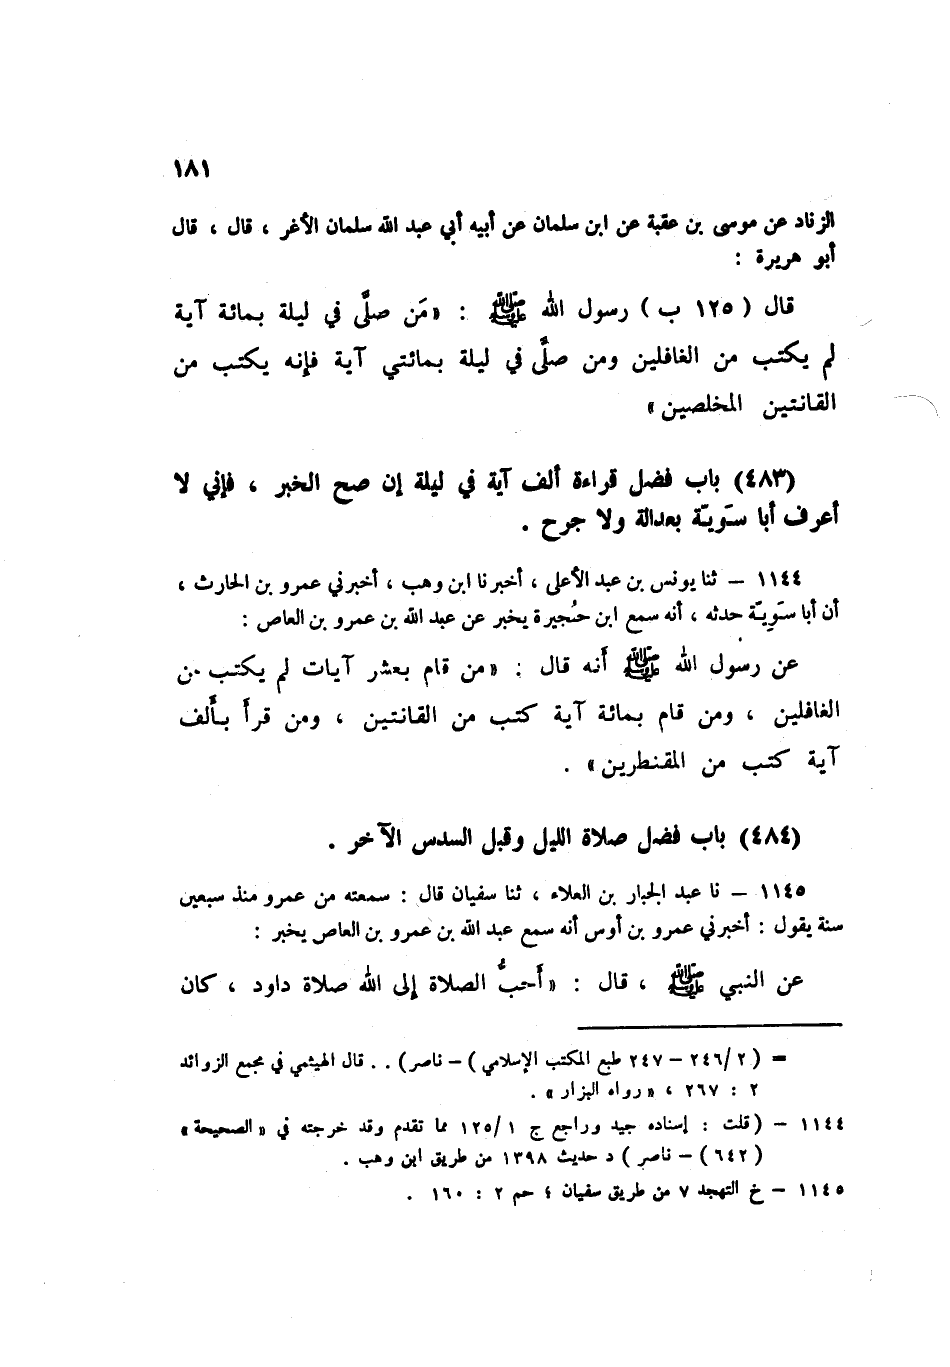 ١٨١
الزناد عن موسى بن عقبة عن ابن سلمان عن أبيه أبي عبد الله سلمان الأغر ، قال ، قال
أبو هريرة :
قال ( ١٢٥ ب ) رسول الله ﷺ : «مَن صلَّى في ليلة بمائة آية
لم يكتب من الغافلين ومن صلَّى في ليلة بمائتي آية فإنه يكتب من
القانتين المخلصين»
(٤٨٣) باب فضل قراءة ألف آية في ليلة إن صح الخبر ، فإني لا
أعرف أبا سَويّة بعدالة ولا جرح .
١١٤٤ – ثنا يونس بن عبد الأعلى ، أخبرنا ابن وهب ، أخبرني عمرو بن الحارث ،
أن أبا سَوِيّة حدثه ، أنه سمع ابن حُجيرة يخبر عن عبد الله بن عمرو بن العاص :
عن رسول الله ﷺ أنه قال : «من قام بعشر آيات لم يكتب من
الغافلين ، ومن قام بمائة آية كتب من القانتين ، ومن قرأ بألف
آية كتب من المقنطرين» .
(٤٨٤) باب فضل صلاة الليل وقبل السدس الآخر .
١١٤٥ – نا عبد الجبار بن العلاء ، ثنا سفيان قال : سمعته من عمرو منذ سبعين
سنة يقول : أخبرني عمرو بن أوس أنه سمع عبد الله بن عمرو بن العاص يخبر :
عن النبي ﷺ ، قال : «أَحبُّ الصلاة إلى الله صلاة داود ، كان
= ( ٢/ ٢٤٦ – ٢٤٧ طبع المكتب الإسلامي ) – ناصر) . . قال الهيثمي في مجمع الزوائد
٢ : ٢٦٧ ، «رواه البزار» .
١١٤٤ – (قلت : إسناده جيد وراجع ج ١ /١٢٥ مما تقدم وقد خرجته في «الصحيحة»
( ٦٤٢ ) – ناصر ) د حديث ١٣٩٨ من طريق ابن وهب .
١١٤٥ – خ التهجد ٧ من طريق سفيان ؛ حم ٢ : ١٦٠ .